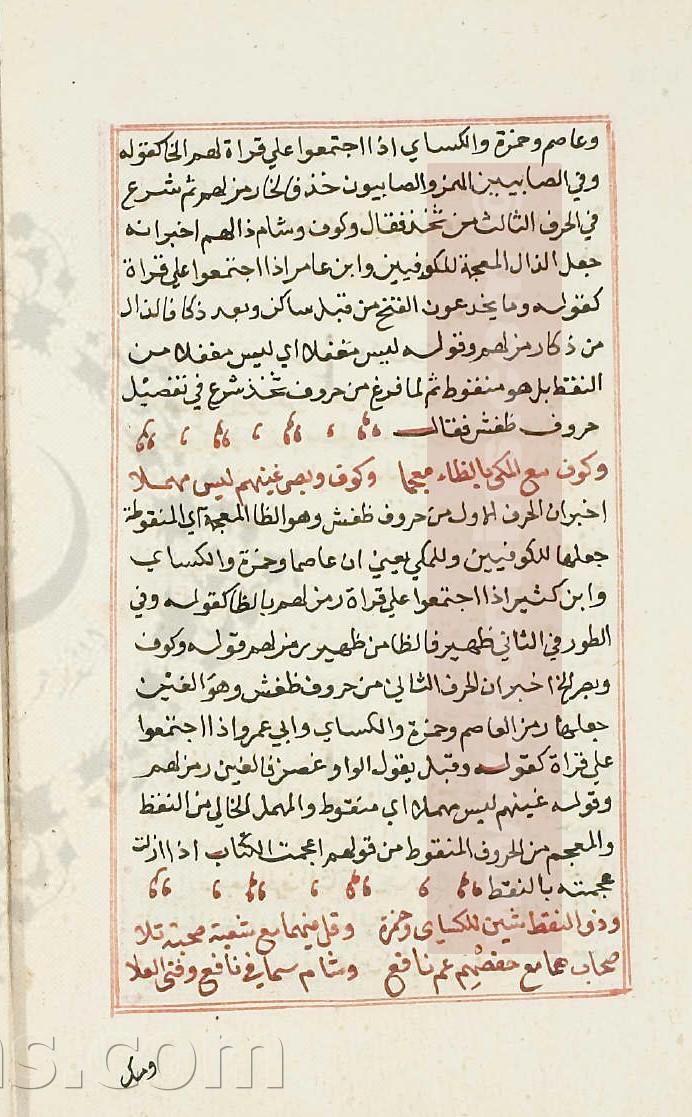 وعاصم وحمزة والكساي اذا اجتمعوا علي قراة لهم الخا كقوله
وفي الصابيين الهمز والصابيون خذ فالخا رمز لهم ثم شرع
في الحرف الثالث من ثخذ فقال وكوف وشام ذالهم اخبر انه
جعل الذال المعجمة للكوفيين وابن عامر اذا اجتمعوا علي قراة
كقوله وما يخدعون الفتح من قبل ساكن وبعد ذكا فالذال
من ذكا رمز لهم وقوله ليس مغفلا اي ليس مغفلا من
النقط بل هو منقوط ثم لما فرغ من حروف ثخذ شرع في تفصيل
حروف ظغش فقال
وكوف مع المكي بالظاء معجما وكوف وبصر غينهم ليس مهملا
اخبر ان الحرف الاول من حروف ظغش وهو الظا المعجمة اي المنقوطة
جعلها للكوفيين وللمكي يعني ان عاصما وحمزة والكساي
وابن كثير اذا اجتمعوا علي قراة رمز لهم بالظا كقوله وفي
الطور في الثاني ظهير فالظا من ظهير رمز لهم قوله وكوف
وبصر الخ اخبر ان الحرف الثاني من حروف ظغش وهو الغين
جعلها رمز العاصم وحمزة والكساي وابي عمرو اذا اجتمعوا
علي قراة كقوله وقبل يقول الواو غصن فالغين رمز لهم
وقوله غينهم ليس مهملا اي منقوط والمهمل الخالي من النقط
والمعجم من الحروف المنقوط من قولهم اعجمت الكتاب اذا ازلت
عجمته بالنقط
وذو النقط شين للكساي وحمزة وقل فيهما مع شعبة صحبة تلا
صحاب هما مع حفصهم عم نافع وشام سما في نافع وفتى العلا
ومك
ns.com